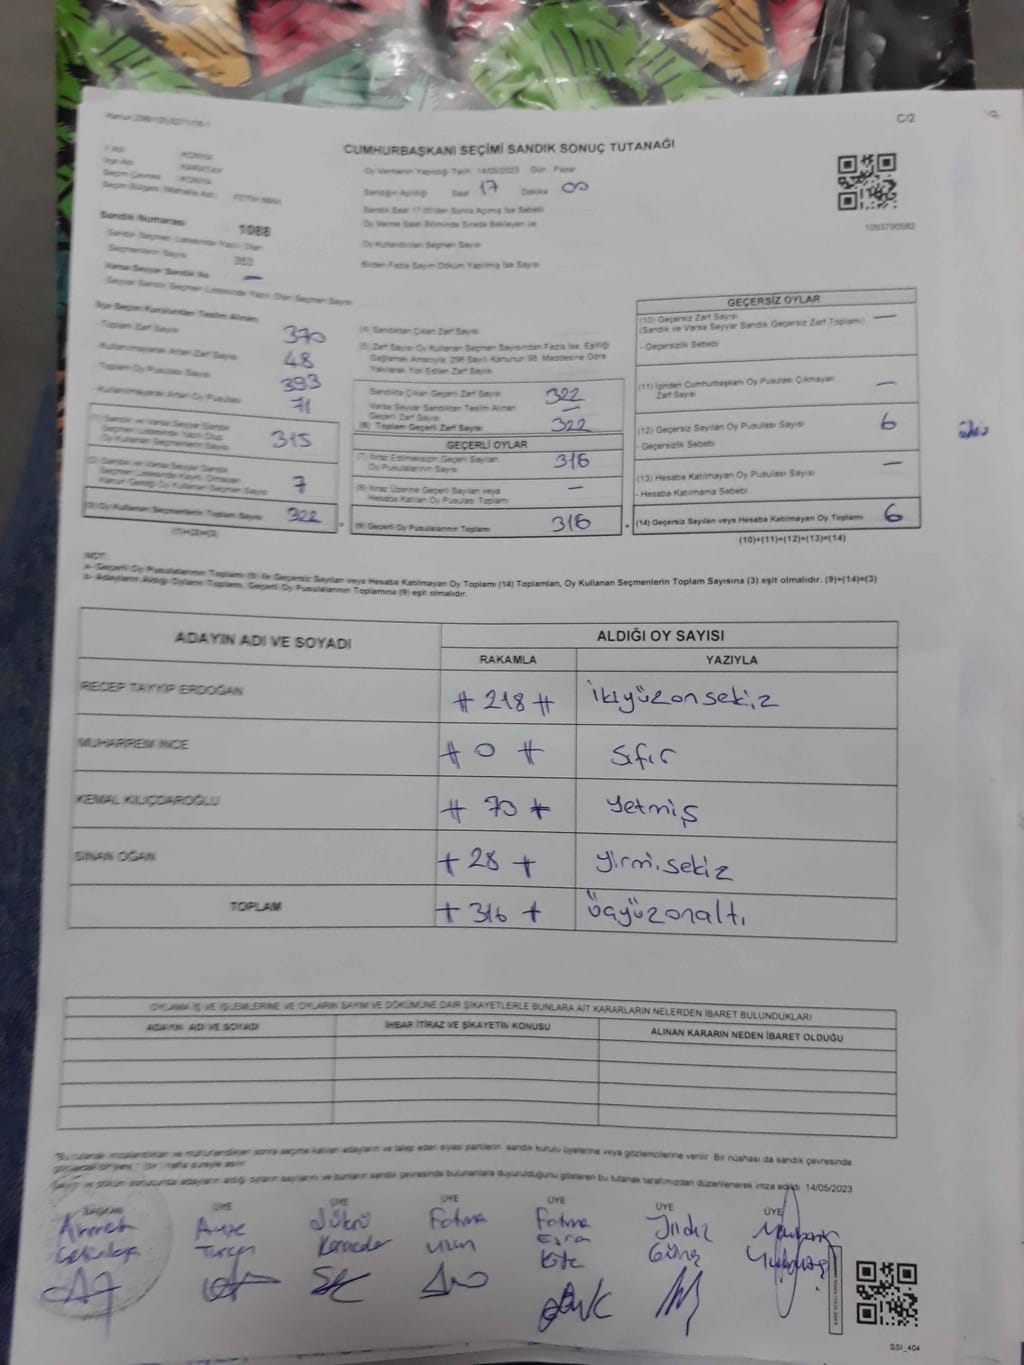 C/2
CUMHURBAŞKANI SEÇİMİ SANDIK SONUÇ TUTANAĞI
İl Adı : KONYA
İlçe Adı : KARATAY
Seçim Çevresi : KONYA
Seçim Bölgesi (Mahalle Adı) : FETİH MAH
Oy Vermenin Yapıldığı Tarih: 14/05/2023 Gün: Pazar
Sandığın Açıldığı Saat 17 Dakika 00
Sandık Saat 17.00'den Sonra Açılmış İse Sebebi
Oy Verme Saati Bitiminde Sırada Bekleyen ve
Oy Kullandırılan Seçmen Sayısı
Birden Fazla Sayım Döküm Yapılmış İse Sayısı
1093790582
Sandık Numarası : 1088
- Sandık Seçmen Listesinde Yazılı Olan
Seçmenlerin Sayısı
Varsa Seyyar Sandık No —
- Seyyar Sandık Seçmen Listesinde Yazılı Olan Seçmen Sayısı
İlçe Seçim Kurulundan Teslim Alınan
- Toplam Zarf Sayısı 370
- Kullanılmayarak Artan Zarf Sayısı 48
- Toplam Oy Pusulası Sayısı 393
- Kullanılmayarak Artan Oy Pusulası 71
(1) Sandık ve Varsa Seyyar Sandık
Seçmen Listesinde Yazılı Olup
Oy Kullanan Seçmenlerin Sayısı 315
(2) Sandık ve Varsa Seyyar Sandık
Seçmen Listesinde Kayıtlı Olmayan
Kanun Gereği Oy Kullanan Seçmen Sayısı 7
(3) Oy Kullanan Seçmenlerin Toplam Sayısı 322
(1)+(2)=(3)
(4) Sandıktan Çıkan Zarf Sayısı
(5) Zarf Sayısı Oy Kullanan Seçmen Sayısından Fazla İse, Eşitliği
Sağlamak Amacıyla, 298 Sayılı Kanunun 98. Maddesine Göre
Yakılarak Yok Edilen Zarf Sayısı
Sandıkta Çıkan Geçerli Zarf Sayısı 322
Varsa Seyyar Sandıktan Teslim Alınan
Geçerli Zarf Sayısı —
(6) Toplam Geçerli Zarf Sayısı 322
GEÇERLİ OYLAR
(7) İtiraz Edilmeksizin Geçerli Sayılan
Oy Pusulalarının Sayısı 316
(8) İtiraz Üzerine Geçerli Sayılan veya
Hesaba Katılan Oy Pusulası Toplamı —
(9) Geçerli Oy Pusulalarının Toplamı 316
GEÇERSİZ OYLAR
(10) Geçersiz Zarf Sayısı —
(Sandık ve Varsa Seyyar Sandık Geçersiz Zarf Toplamı)
- Geçersizlik Sebebi
(11) İçinden Cumhurbaşkanı Oy Pusulası Çıkmayan
Zarf Sayısı —
(12) Geçersiz Sayılan Oy Pusulası Sayısı 6
- Geçersizlik Sebebi
(13) Hesaba Katılmayan Oy Pusulası Sayısı —
- Hesaba Katılmama Sebebi
(14) Geçersiz Sayılan veya Hesaba Katılmayan Oy Toplamı 6
(10)+(11)+(12)+(13)=(14)
NOT:
a- Geçerli Oy Pusulalarının Toplamı (9) ile Geçersiz Sayılan veya Hesaba Katılmayan Oy Toplamı (14) Toplamları, Oy Kullanan Seçmenlerin Toplam Sayısına (3) eşit olmalıdır. (9)+(14)=(3)
b- Adayların Aldığı Oyların Toplamı, Geçerli Oy Pusulalarının Toplamına (9) eşit olmalıdır.
ADAYIN ADI VE SOYADI ALDIĞI OY SAYISI
RAKAMLA YAZIYLA
RECEP TAYYİP ERDOĞAN # 218 # İkiyüzonsekiz
MUHARREM İNCE # 0 # Sıfır
KEMAL KILIÇDAROĞLU # 70 # Yetmiş
SİNAN OĞAN + 28 + yirmisekiz
TOPLAM + 316 + üçyüzonaltı
OYLAMA İŞ VE İŞLEMLERİNE VE OYLARIN SAYIM VE DÖKÜMÜNE DAİR ŞİKAYETLERLE BUNLARA AİT KARARLARIN NELERDEN İBARET BULUNDUKLARI
ADAYIN ADI VE SOYADI İHBAR İTİRAZ VE ŞİKAYETİN KONUSU ALINAN KARARIN NEDEN İBARET OLDUĞU
"Bu tutanak imzalandıktan ve mühürlendikten sonra seçime katılan adayların ve talep eden siyasi partilerin sandık kurulu üyelerine veya gözlemcilerine verilir. Bir nüshası da sandık çevresinde
görülecek bir yere (bir) hafta süreyle asılır.
Sayım ve döküm sonucunda adayların aldığı oyların sayılarını ve bunların sandık çevresinde bulunanlara duyurulduğunu gösteren bu tutanak tarafımızdan düzenlenerek imza edildi. 14/05/2023
Başkan ÜYE ÜYE ÜYE ÜYE ÜYE ÜYE
Ahmet Ayşe Şükrü Fatma Fatma Yıldız
Esra Güneş
SSI_404